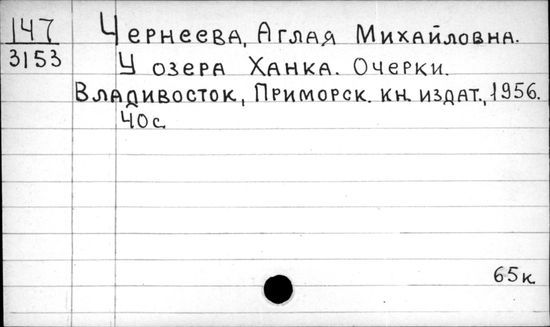 147 Чернеева, Аглая Михайловна.
3153 У озера Ханка. Очерки.
Владивосток, Приморск. кн. издат., 1956.
40 с.
65 к